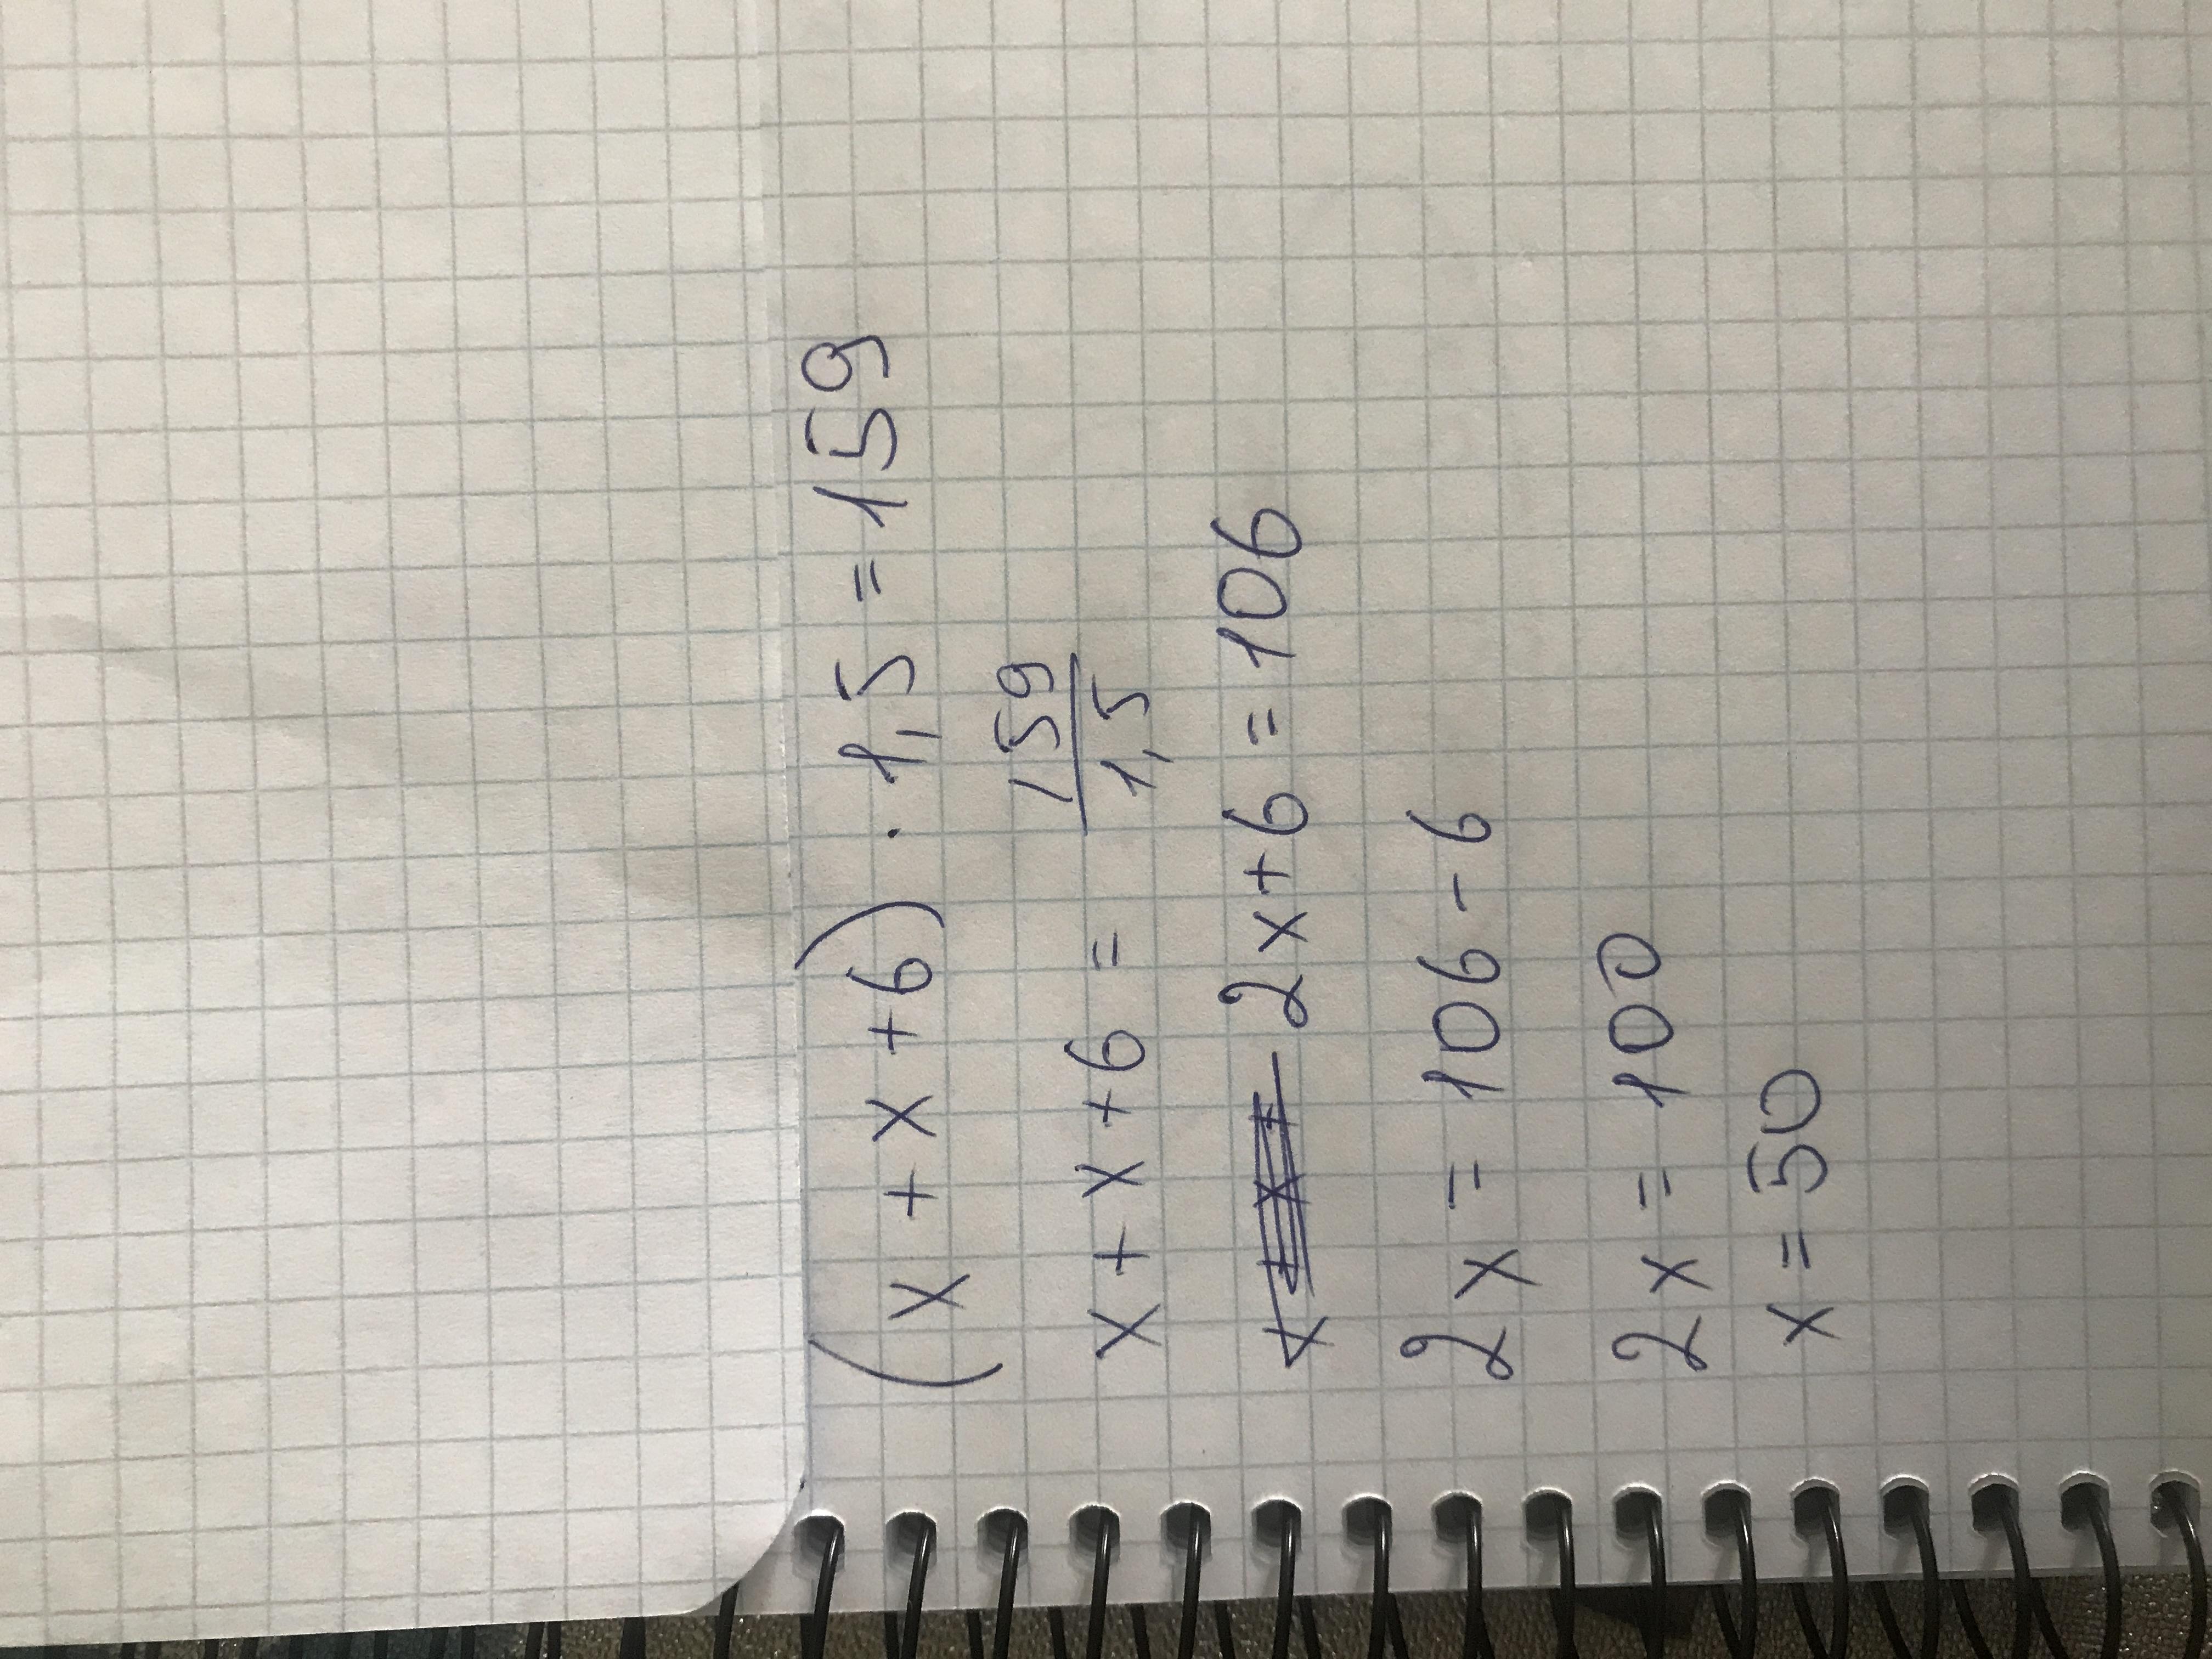 (x + x + 6) · 1,5 = 159
x + x + 6 = 159/1,5
2x + 6 = 106
2x = 106 - 6
2x = 100
x = 50